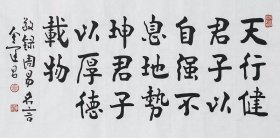 天行健
君子以
自强不
息地勢
坤君子
以厚德
載物
敬録周易名言
金运昌